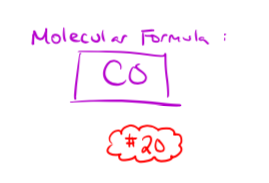 Molecular Formula :
CO
#20